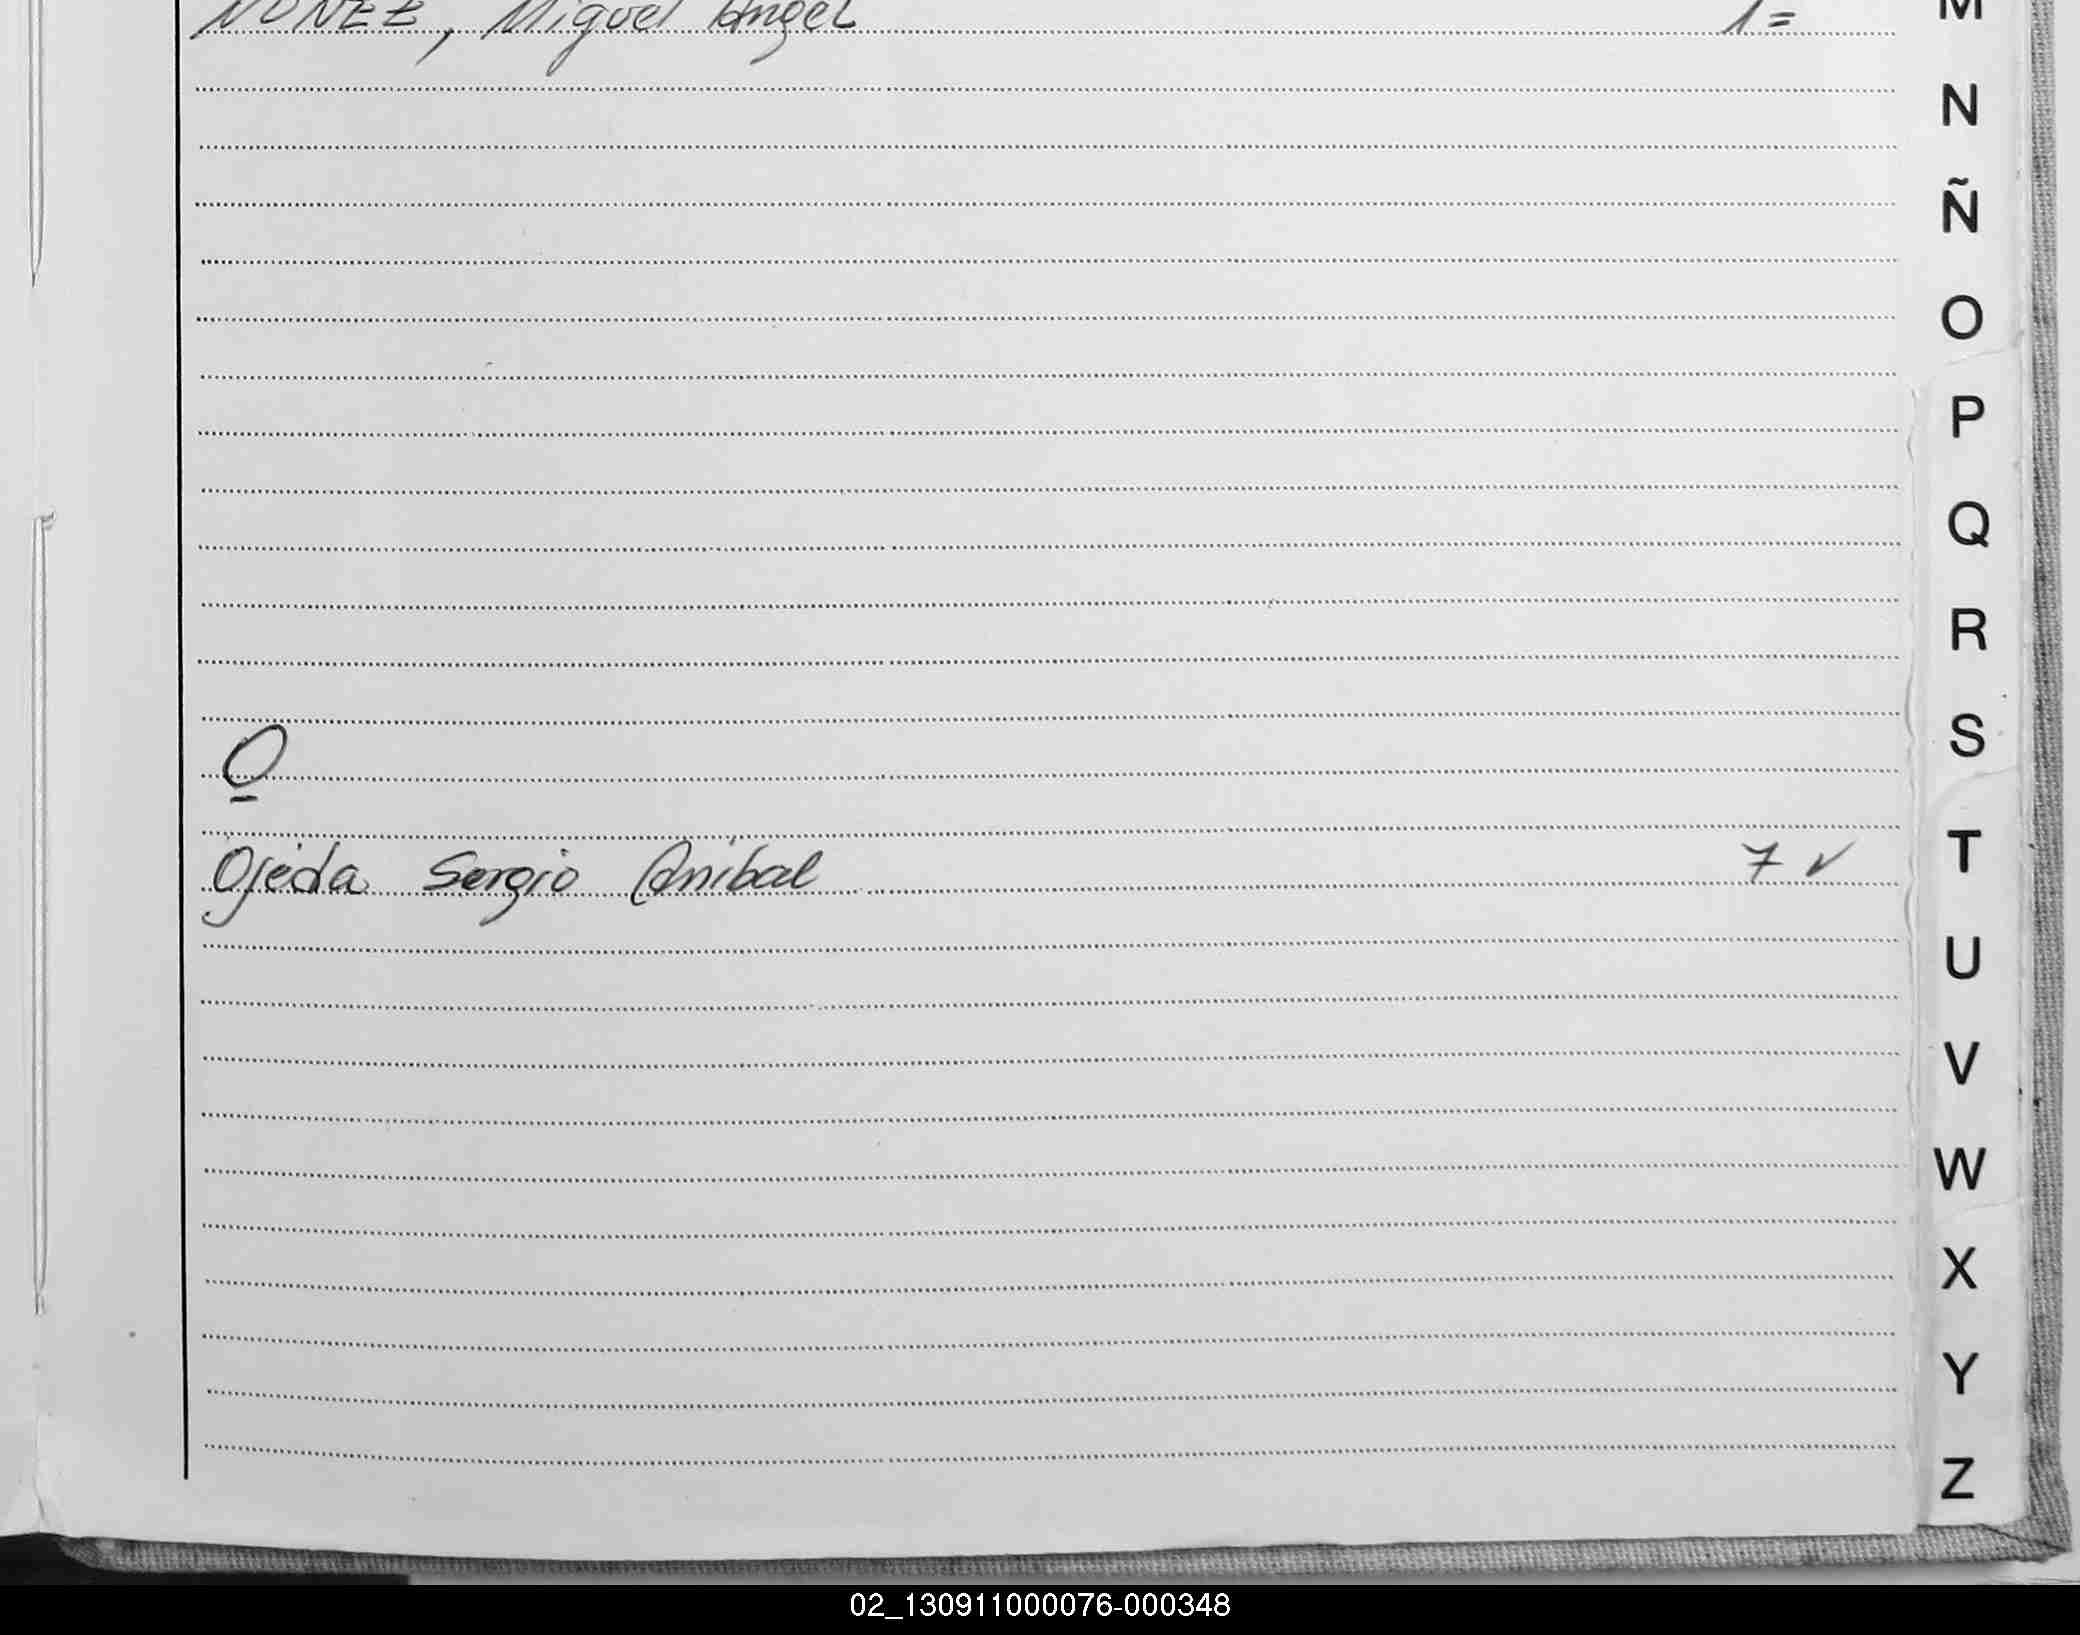 NUÑEZ, Miguel Angel 1=
O
Ojeda Sergio Anibal 7 ✓
M
N
Ñ
O
P
Q
R
S
T
U
V
W
X
Y
Z
02_130911000076-000348